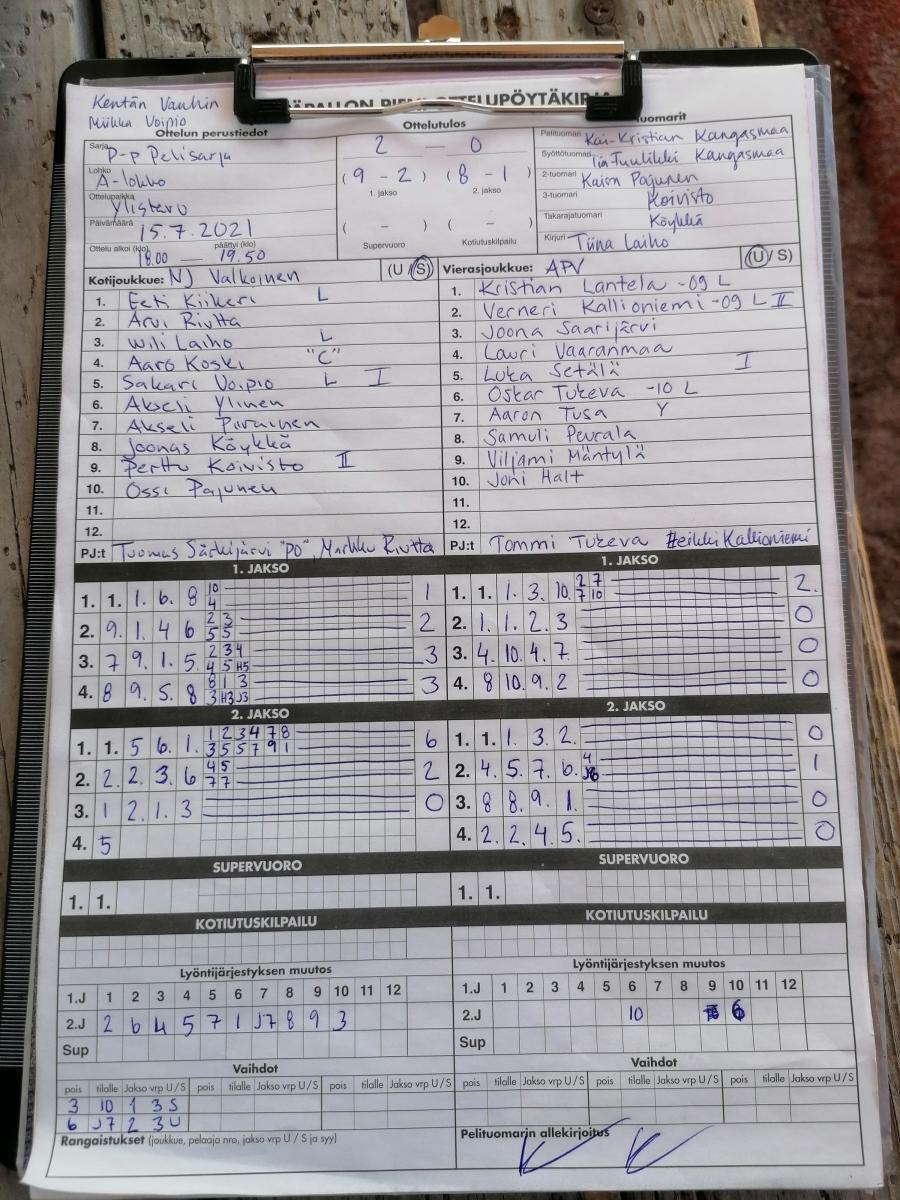 Kentän Vanhin
Miikka Voipio
Ottelun perustiedot
Sarja P-p Pelisarja
Lohko A-lohko
Ottelupaikka Ylistaro
Päivämäärä 15.7.2021
Ottelu alkoi (klo) 18.00 — päättyi (klo) 19.50
Ottelutulos
2 — 0
(9 - 2) (8 - 1)
1. jakso 2. jakso
( - ) ( - )
Supervuoro Kotiutuskilpailu
Pelituomari Kai-Kristian Kangasmaa
Syöttötuomari Tuulikki Kangasmaa
2-tuomari Pajunen
3-tuomari Koivisto
Takarajatuomari Köykkä
Kirjuri Tiina Laiho
Kotijoukkue: NJ Valkoinen (U / S)
1. Eeti Kiikeri L
2. Arvi Riutta
3. Wili Laiho L
4. Aaro Koski "C"
5. Sakari Voipio L I
6. Akseli Ylinen
7. Akseli
8. Joonas Köykkä
9. Perttu Koivisto II
10. Ossi Pajunen
11.
12.
PJ:t Tuomas Särkijärvi "PO", Markku Riutta
Vierasjoukkue: APV (U / S)
1. Kristian Lantela -09 L
2. Verneri Kallioniemi -09 L II
3. Joona Saarijärvi
4. Lauri Vaaranmaa
5. Luka Setälä I
6. Oskar Tukeva -10 L
7. Aaron Tusa Y
8. Samuli Peurala
9. Viljami Mäntylä
10. Joni Halt
11.
12.
PJ:t Tommi Tukeva Heikki Kallioniemi
1. JAKSO
1. 1. 1. 6. 8 10 1
4
2. 9. 1. 4 6 2 3 2
5 5
3. 7 9. 1. 5. 2 3 4 3
4 5 H5
4. 8 9. 5. 8 8 1 3 3
3 H3 J3
1. JAKSO
1. 1. 1. 3. 10. 2 7 2.
7 10
2. 1. 1. 2. 3 0
3. 4. 10. 4. 7. 0
4. 8 10. 9. 2 0
2. JAKSO
1. 1. 5 6. 1. 1 2 3 4 7 8 6
3 5 5 7 9 1
2. 2. 2. 3. 6 4 5 2
7 7
3. 1 2. 1. 3 0
4. 5
2. JAKSO
1. 1. 1. 3. 2. 0
2. 4. 5. 7. 6. 4 1
3. 8 8. 9. 1. 0
4. 2. 2. 4. 5. 0
SUPERVUORO
1. 1.
SUPERVUORO
1. 1.
KOTIUTUSKILPAILU
KOTIUTUSKILPAILU
Lyöntijärjestyksen muutos
1.J 1 2 3 4 5 6 7 8 9 10 11 12
2.J 2 6 4 5 7 1 J7 8 9 3
Sup
Lyöntijärjestyksen muutos
1.J 1 2 3 4 5 6 7 8 9 10 11 12
2.J 10 6
Sup
Vaihdot
pois tilalle Jakso vrp U/S pois tilalle Jakso vrp U/S pois tilalle Jakso vrp U/S
3 10 1 3 S
6 J7 2 3 U
Vaihdot
pois tilalle Jakso vrp U/S pois tilalle Jakso vrp U/S pois tilalle Jakso vrp U/S
Rangaistukset (joukkue, pelaaja nro, jakso vrp U / S ja syy)
Pelituomarin allekirjoitus